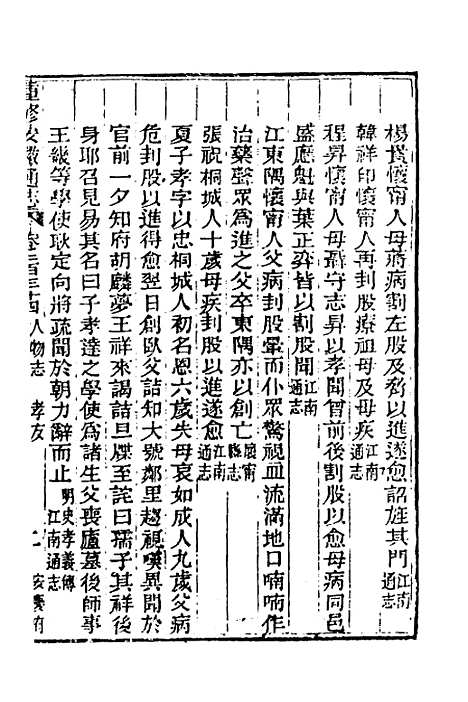 楊𢣷懷甯人母病病割左股及脅以進遂愈詔旌其門江南通志
韓祥印懷甯人再刲股療祖母及母疾江南通志
程昇懷甯人母聶守志昇以孝聞曾前後割股以愈母病同邑
盛應魁與葉正葬皆以割股聞江南通志
江東隅懷甯人父病刲股暈而仆眾驚視血流滿地口喃喃作
治藥聲眾為進之父卒東隅亦以創亡懷甯縣志
張祝桐城人十歲母疾刲股以進遂愈江南通志
夏子孝字以忠桐城人初名恩六歲失母哀如成人九歲父病
危刲股以進得愈翌日創臥父詰知大號鄰里趨視嘆異聞於
官前一夕知府胡麟夢王祥來謁詰旦牒至詫曰孺子其祥後
身耶召見易其名曰子孝達之學使為諸生父喪廬墓後師事
王畿等學使耿定向將疏聞於朝力辭而止明史孝義傳江南通志
重修安徽通志卷二百三十四 人物志 孝友 二 安慶府